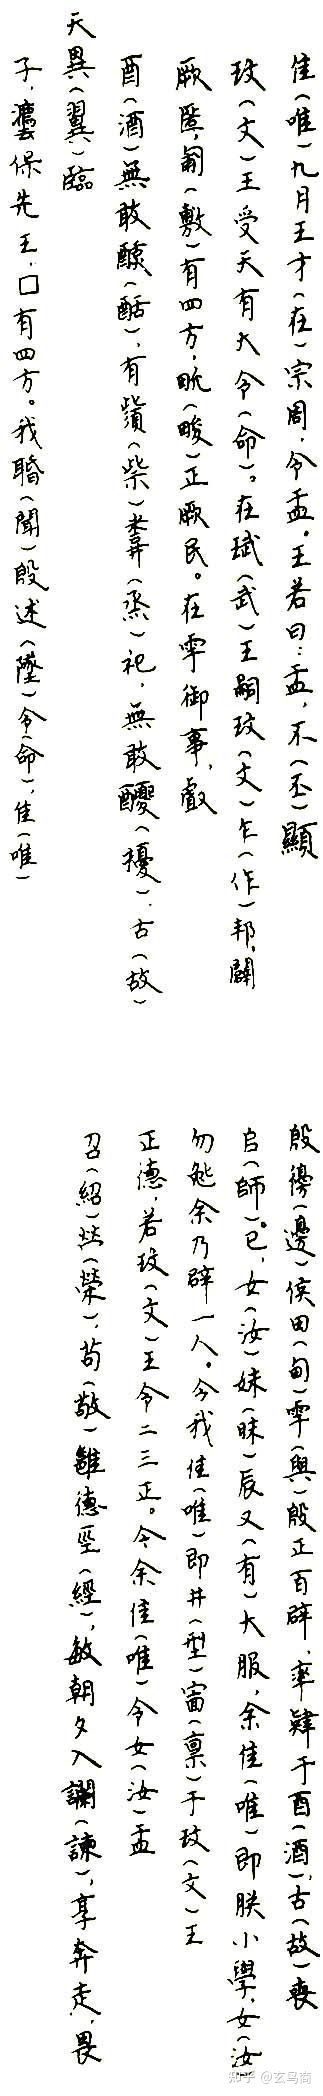 隹(唯)九月王才(在)宗周,令盂。王若曰:盂,不(丕)顯
玟(文)王受天有大令(命)。在珷(武)王嗣玟(文)乍(作)邦,闢
厥匿,匍(敷)有四方,㽙(畯)正厥民。在雩御事,䖒
酉(酒)無敢(酟),有(柴)(烝)祀,無敢(擾),古(故)
天異(翼)臨
子,灋保先王,□有四方。我(聞)殷述(墜)令(命),隹(唯)
殷(邊)侯田(甸)雩(與)殷正百辟,率肄于酉(酒),古(故)喪
𠂤(師)。已,女(汝)妹(昧)辰又(有)大服,余隹(唯)即朕小學,女(汝)
勿余乃辟一人。今我隹(唯)即井(型)㐭(禀)于玟(文)王
正德,若玟(文)王令二三正。今余隹(唯)令女(汝)盂
召(紹)(榮),苟(敬)雝德巠(經),敏朝夕入讕(諫),享奔走,畏
知乎 @玄鸟商